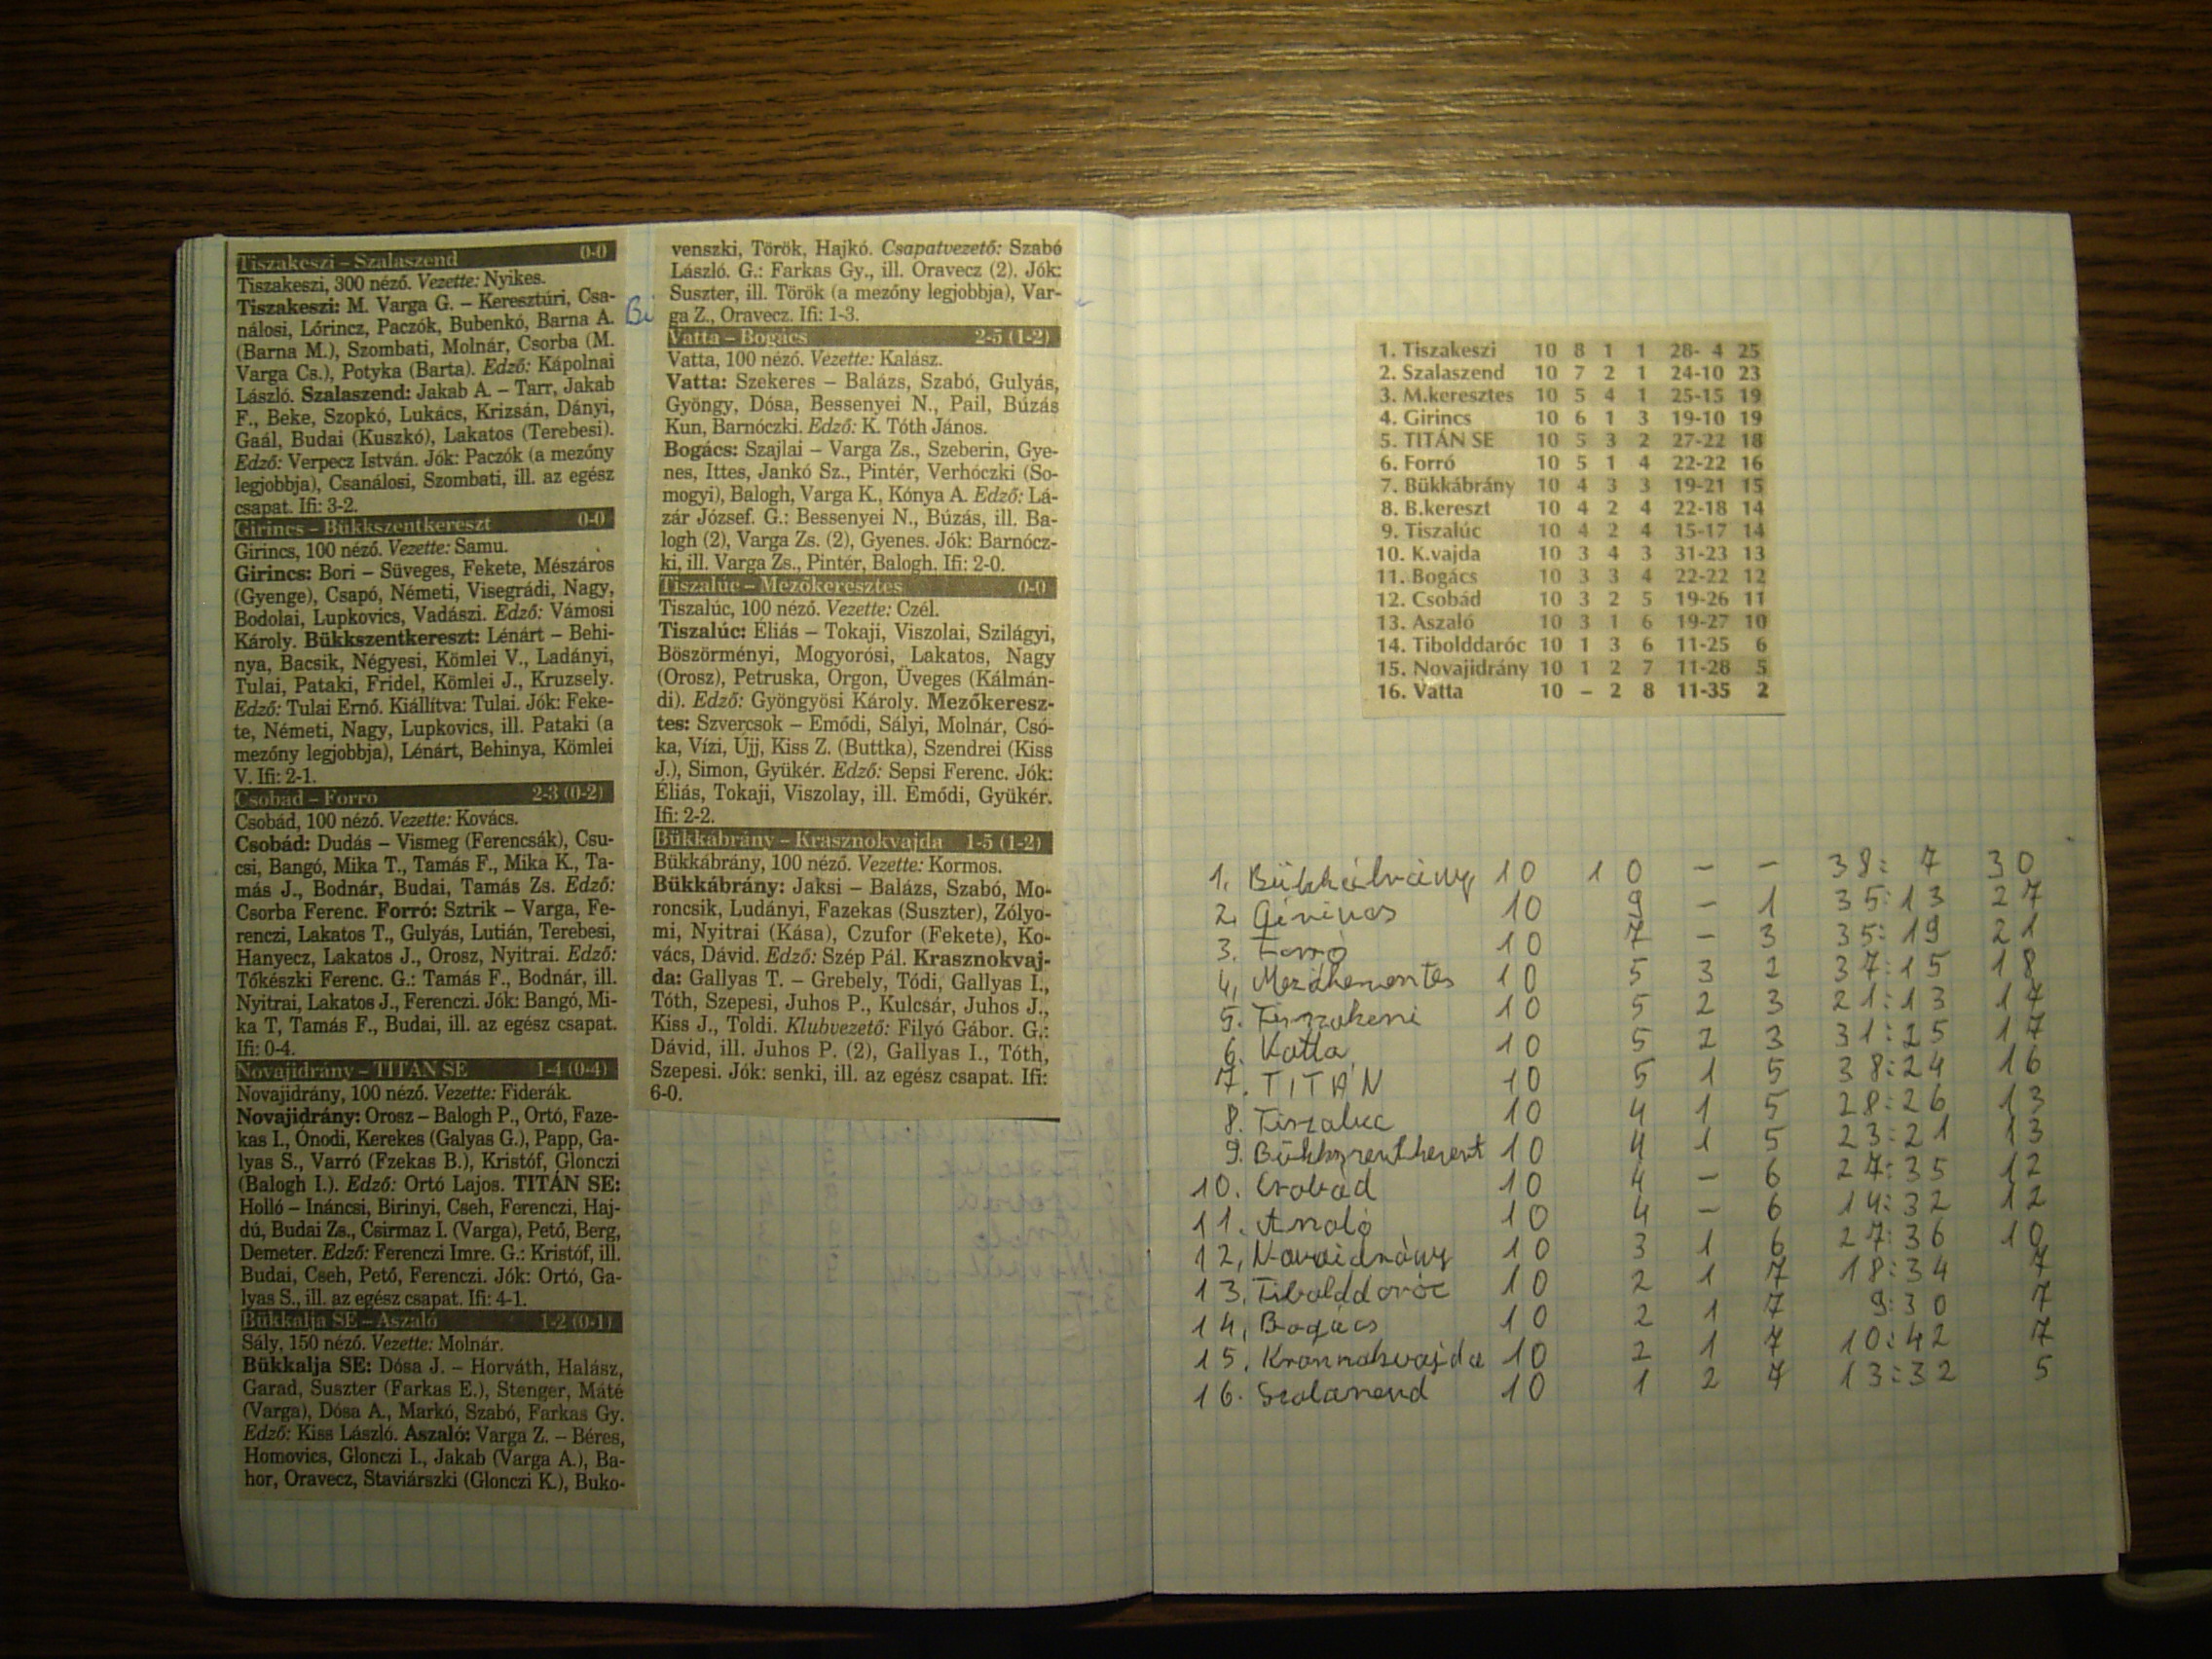 Tiszakeszi – Szalaszend 0-0
Tiszakeszi, 300 néző. Vezette: Nyikes.
Tiszakeszi: M. Varga G. – Keresztúri, Csa-
nálosi, Lőrincz, Paczók, Bubenkó, Barna A.
(Barna M.), Szombati, Molnár, Csorba (M.
Varga Cs.), Potyka (Barta). Edző: Kápolnai
László. Szalaszend: Jakab A. – Tarr, Jakab
F., Beke, Szopkó, Lukács, Krizsán, Dányi,
Gaál, Budai (Kuszkó), Lakatos (Terebesi).
Edző: Verpecz István. Jók: Paczók (a mezőny
legjobbja), Csanálosi, Szombati, ill. az egész
csapat. Ifi: 3-2.
Girincs – Bükkszentkereszt 0-0
Girincs, 100 néző. Vezette: Samu.
Girincs: Bori – Süveges, Fekete, Mészáros
(Gyenge), Csapó, Németi, Visegrádi, Nagy,
Bodolai, Lupkovics, Vadászi. Edző: Vámosi
Károly. Bükkszentkereszt: Lénárt – Behi-
nya, Bacsik, Négyesi, Kömlei V., Ladányi,
Tulai, Pataki, Fridel, Kömlei J., Kruzsely.
Edző: Tulai Ernő. Kiállítva: Tulai. Jók: Feke-
te, Németi, Nagy, Lupkovics, ill. Pataki (a
mezőny legjobbja), Lénárt, Behinya, Kömlei
V. Ifi: 2-1.
Csobád – Forró 2-3 (0-2)
Csobád, 100 néző. Vezette: Kovács.
Csobád: Dudás – Vismeg (Ferencsák), Csu-
csi, Bangó, Mika T., Tamás F., Mika K., Ta-
más J., Bodnár, Budai, Tamás Zs. Edző:
Csorba Ferenc. Forró: Sztrik – Varga, Fe-
renczi, Lakatos T., Gulyás, Lutián, Terebesi,
Hanyecz, Lakatos J., Orosz, Nyitrai. Edző:
Tőkészki Ferenc. G.: Tamás F., Bodnár, ill.
Nyitrai, Lakatos J., Ferenczi. Jók: Bangó, Mi-
ka T, Tamás F., Budai, ill. az egész csapat.
Ifi: 0-4.
Novajidrány – TITÁN SE 1-4 (0-4)
Novajidrány, 100 néző. Vezette: Fiderák.
Novajidrány: Orosz – Balogh P., Ortó, Faze-
kas I., Ónodi, Kerekes (Galyas G.), Papp, Ga-
lyas S., Varró (Fzekas B.), Kristóf, Glonczi
(Balogh I.). Edző: Ortó Lajos. TITÁN SE:
Holló – Ináncsi, Birinyi, Cseh, Ferenczi, Haj-
dú, Budai Zs., Csirmaz I. (Varga), Pető, Berg,
Demeter. Edző: Ferenczi Imre. G.: Kristóf, ill.
Budai, Cseh, Pető, Ferenczi. Jók: Ortó, Ga-
lyas S., ill. az egész csapat. Ifi: 4-1.
Bükkalja SE – Aszaló 1-2 (0-1)
Sály, 150 néző. Vezette: Molnár.
Bükkalja SE: Dósa J. – Horváth, Halász,
Garad, Suszter (Farkas E.), Stenger, Máté
(Varga), Dósa A., Markó, Szabó, Farkas Gy.
Edző: Kiss László. Aszaló: Varga Z. – Béres,
Homovics, Glonczi I., Jakab (Varga A.), Ba-
hor, Oravecz, Staviárszki (Glonczi K.), Buko-
venszki, Török, Hajkó. Csapatvezető: Szabó
László. G.: Farkas Gy., ill. Oravecz (2). Jók:
Suszter, ill. Török (a mezőny legjobbja), Var-
ga Z., Oravecz. Ifi: 1-3.
Vatta – Bogács 2-5 (1-2)
Vatta, 100 néző. Vezette: Kalász.
Vatta: Szekeres – Balázs, Szabó, Gulyás,
Gyöngy, Dósa, Bessenyei N., Pail, Búzás
Kun, Barnóczki. Edző: K. Tóth János.
Bogács: Szajlai – Varga Zs., Szeberin, Gye-
nes, Ittes, Jankó Sz., Pintér, Verhóczki (So-
mogyi), Balogh, Varga K., Kónya A. Edző: Lá-
zár József. G.: Bessenyei N., Búzás, ill. Ba-
logh (2), Varga Zs. (2), Gyenes. Jók: Barnócz-
ki, ill. Varga Zs., Pintér, Balogh. Ifi: 2-0.
Tiszalúc – Mezőkeresztes 0-0
Tiszalúc, 100 néző. Vezette: Czél.
Tiszalúc: Éliás – Tokaji, Viszolai, Szilágyi,
Böszörményi, Mogyorósi, Lakatos, Nagy
(Orosz), Petruska, Orgon, Üveges (Kálmán-
di). Edző: Gyöngyösi Károly. Mezőkeresz-
tes: Szvercsok – Emődi, Sályi, Molnár, Csó-
ka, Vízi, Újj, Kiss Z. (Buttka), Szendrei (Kiss
J.), Simon, Gyükér. Edző: Sepsi Ferenc. Jók:
Éliás, Tokaji, Viszolay, ill. Emődi, Gyükér.
Ifi: 2-2.
Bükkábrány – Krasznokvajda 1-5 (1-2)
Bükkábrány, 100 néző. Vezette: Kormos.
Bükkábrány: Jaksi – Balázs, Szabó, Mo-
roncsik, Ludányi, Fazekas (Suszter), Zólyo-
mi, Nyitrai (Kása), Czufor (Fekete), Ko-
vács, Dávid. Edző: Szép Pál. Krasznokvaj-
da: Gallyas T. – Grebely, Tódi, Gallyas I.,
Tóth, Szepesi, Juhos P., Kulcsár, Juhos J.,
Kiss J., Toldi. Klubvezető: Filyó Gábor. G.:
Dávid, ill. Juhos P. (2), Gallyas I., Tóth,
Szepesi. Jók: senki, ill. az egész csapat. Ifi:
6-0.
1. Tiszakeszi 10 8 1 1 28- 4 25
2. Szalaszend 10 7 2 1 24-10 23
3. M.keresztes 10 5 4 1 25-15 19
4. Girincs 10 6 1 3 19-10 19
5. TITÁN SE 10 5 3 2 27-22 18
6. Forró 10 5 1 4 22-22 16
7. Bükkábrány 10 4 3 3 19-21 15
8. B.kereszt 10 4 2 4 22-18 14
9. Tiszalúc 10 4 2 4 15-17 14
10. K.vajda 10 3 4 3 31-23 13
11. Bogács 10 3 3 4 22-22 12
12. Csobád 10 3 2 5 19-26 11
13. Aszaló 10 3 1 6 19-27 10
14. Tibolddaróc 10 1 3 6 11-25 6
15. Novajidrány 10 1 2 7 11-28 5
16. Vatta 10 – 2 8 11-35 2
1. Bükkábrány 10 10 – – 38: 7 30
2. Girincs 10 9 – 1 35:13 27
3. Forró 10 7 – 3 35:19 21
4. Mezőkeresztes 10 5 3 2 37:15 18
5. Tiszakeszi 10 5 2 3 21:13 17
6. Vatta 10 5 2 3 31:25 17
7. TITÁN 10 5 1 5 38:24 16
8. Tiszaluc 10 4 1 5 28:26 13
9. Bükkszentkereszt 10 4 1 5 23:21 13
10. Csobád 10 4 – 6 27:35 12
11. Aszaló 10 4 – 6 14:32 12
12. Novaidrány 10 3 1 6 27:36 10
13. Tibolddaróc 10 2 1 7 18:34 7
14. Bogács 10 2 1 7 9:30 7
15. Krasznokvajda 10 2 1 7 10:42 7
16. Szalaszend 10 1 2 7 13:32 5